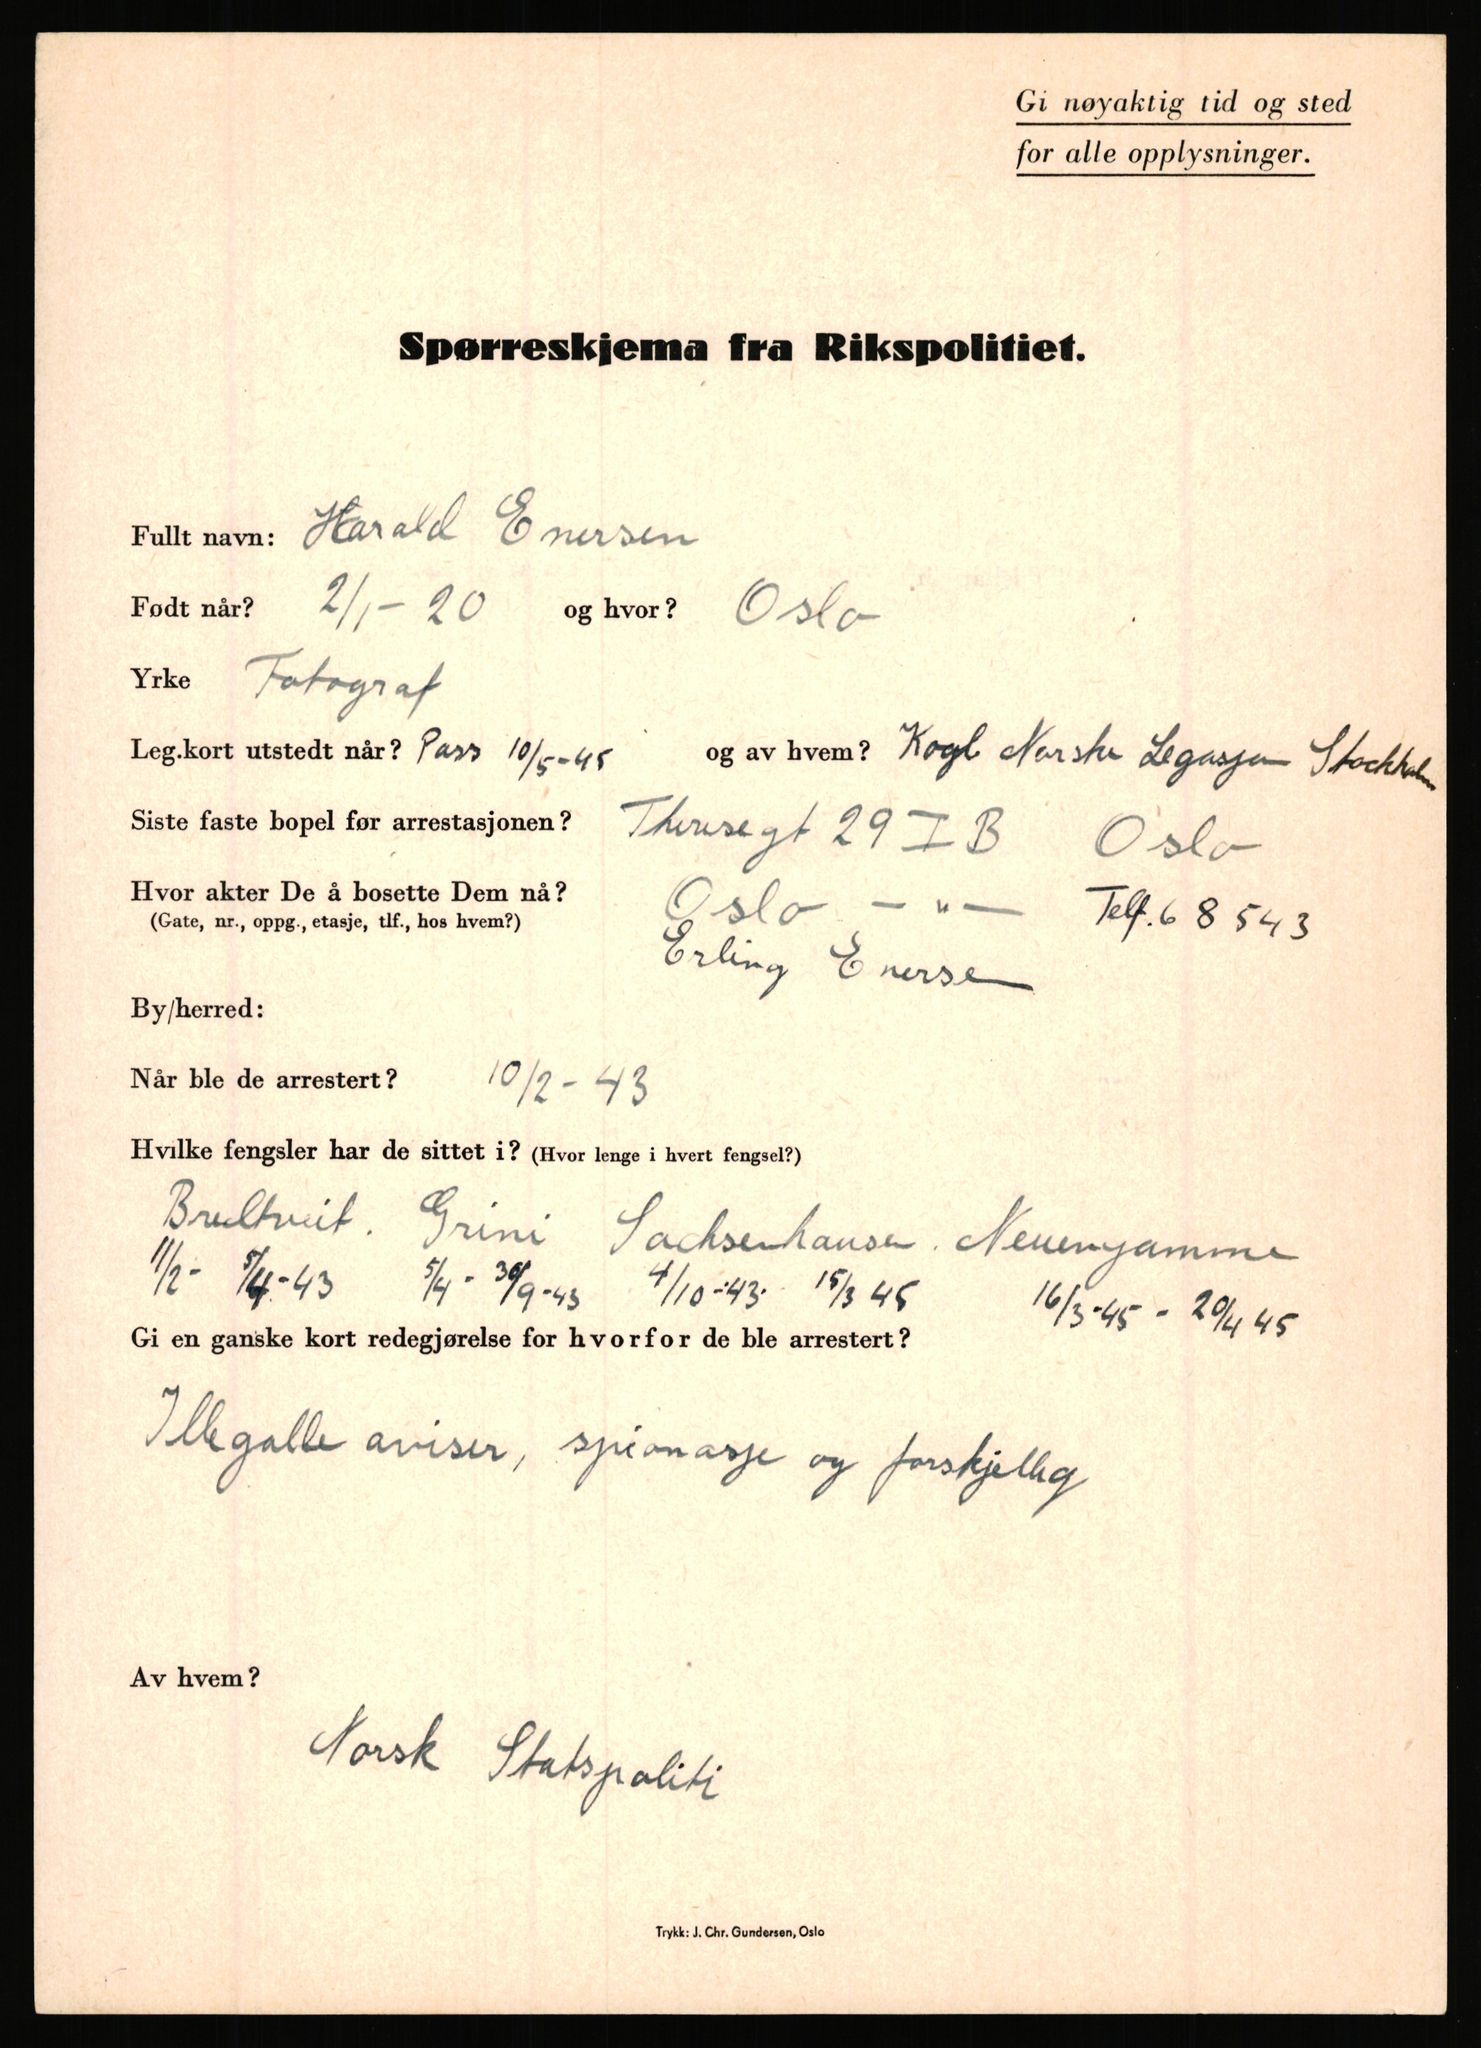 Gi nøyaktig tid og sted
for alle opplysninger.
Spørreskjema fra Rikspolitiet.
Fullt navn: Harald Enersen
Født når? 2/1-20 og hvor? Oslo
Yrke Fotograf
Leg.kort utstedt når? Pass 10/5-45 og av hvem? Kogl Norske Legasjon Stockholm
Siste faste bopel før arrestasjonen? Theresegt 29 I B Oslo
Hvor akter De å bosette Dem nå? Oslo —"— Telf. 68543
(Gate, nr., oppg., etasje, tlf., hos hvem?)
Erling Enersen
By/herred:
Når ble de arrestert? 10/2-43
Hvilke fengsler har de sittet i? (Hvor lenge i hvert fengsel?)
Bredtveit. Grini Sachsenhausen. Neuengamme
11/2- 5/4-43 5/4-30/9-43 4/10-43. 15/3 45 16/3-45 - 20/4 45
Gi en ganske kort redegjørelse for hvorfor de ble arrestert?
Illegalle aviser, spionasje og forskjellig
Av hvem?
Norsk Statspoliti
Trykk: J. Chr. Gundersen, Oslo